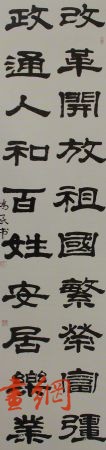 改革開放祖國繁榮富彊
政通人和百姓安居樂業
畫網